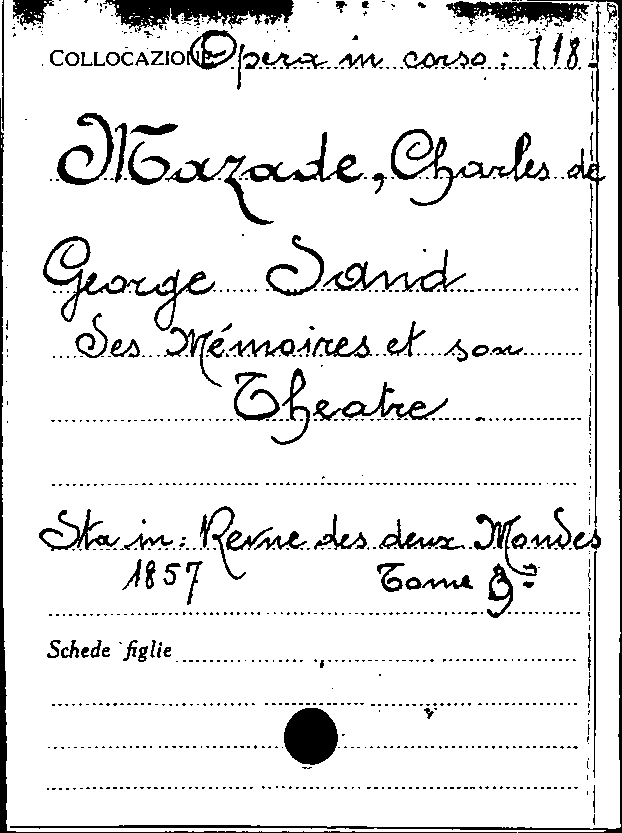 COLLOCAZIONE Opera in corso: 118.
Mazade, Charles de
George Sand
Ses Mémoires et son
Theatre.
Sta in: Revue des deux Mondes
1857 Tome 9º
Schede figlie